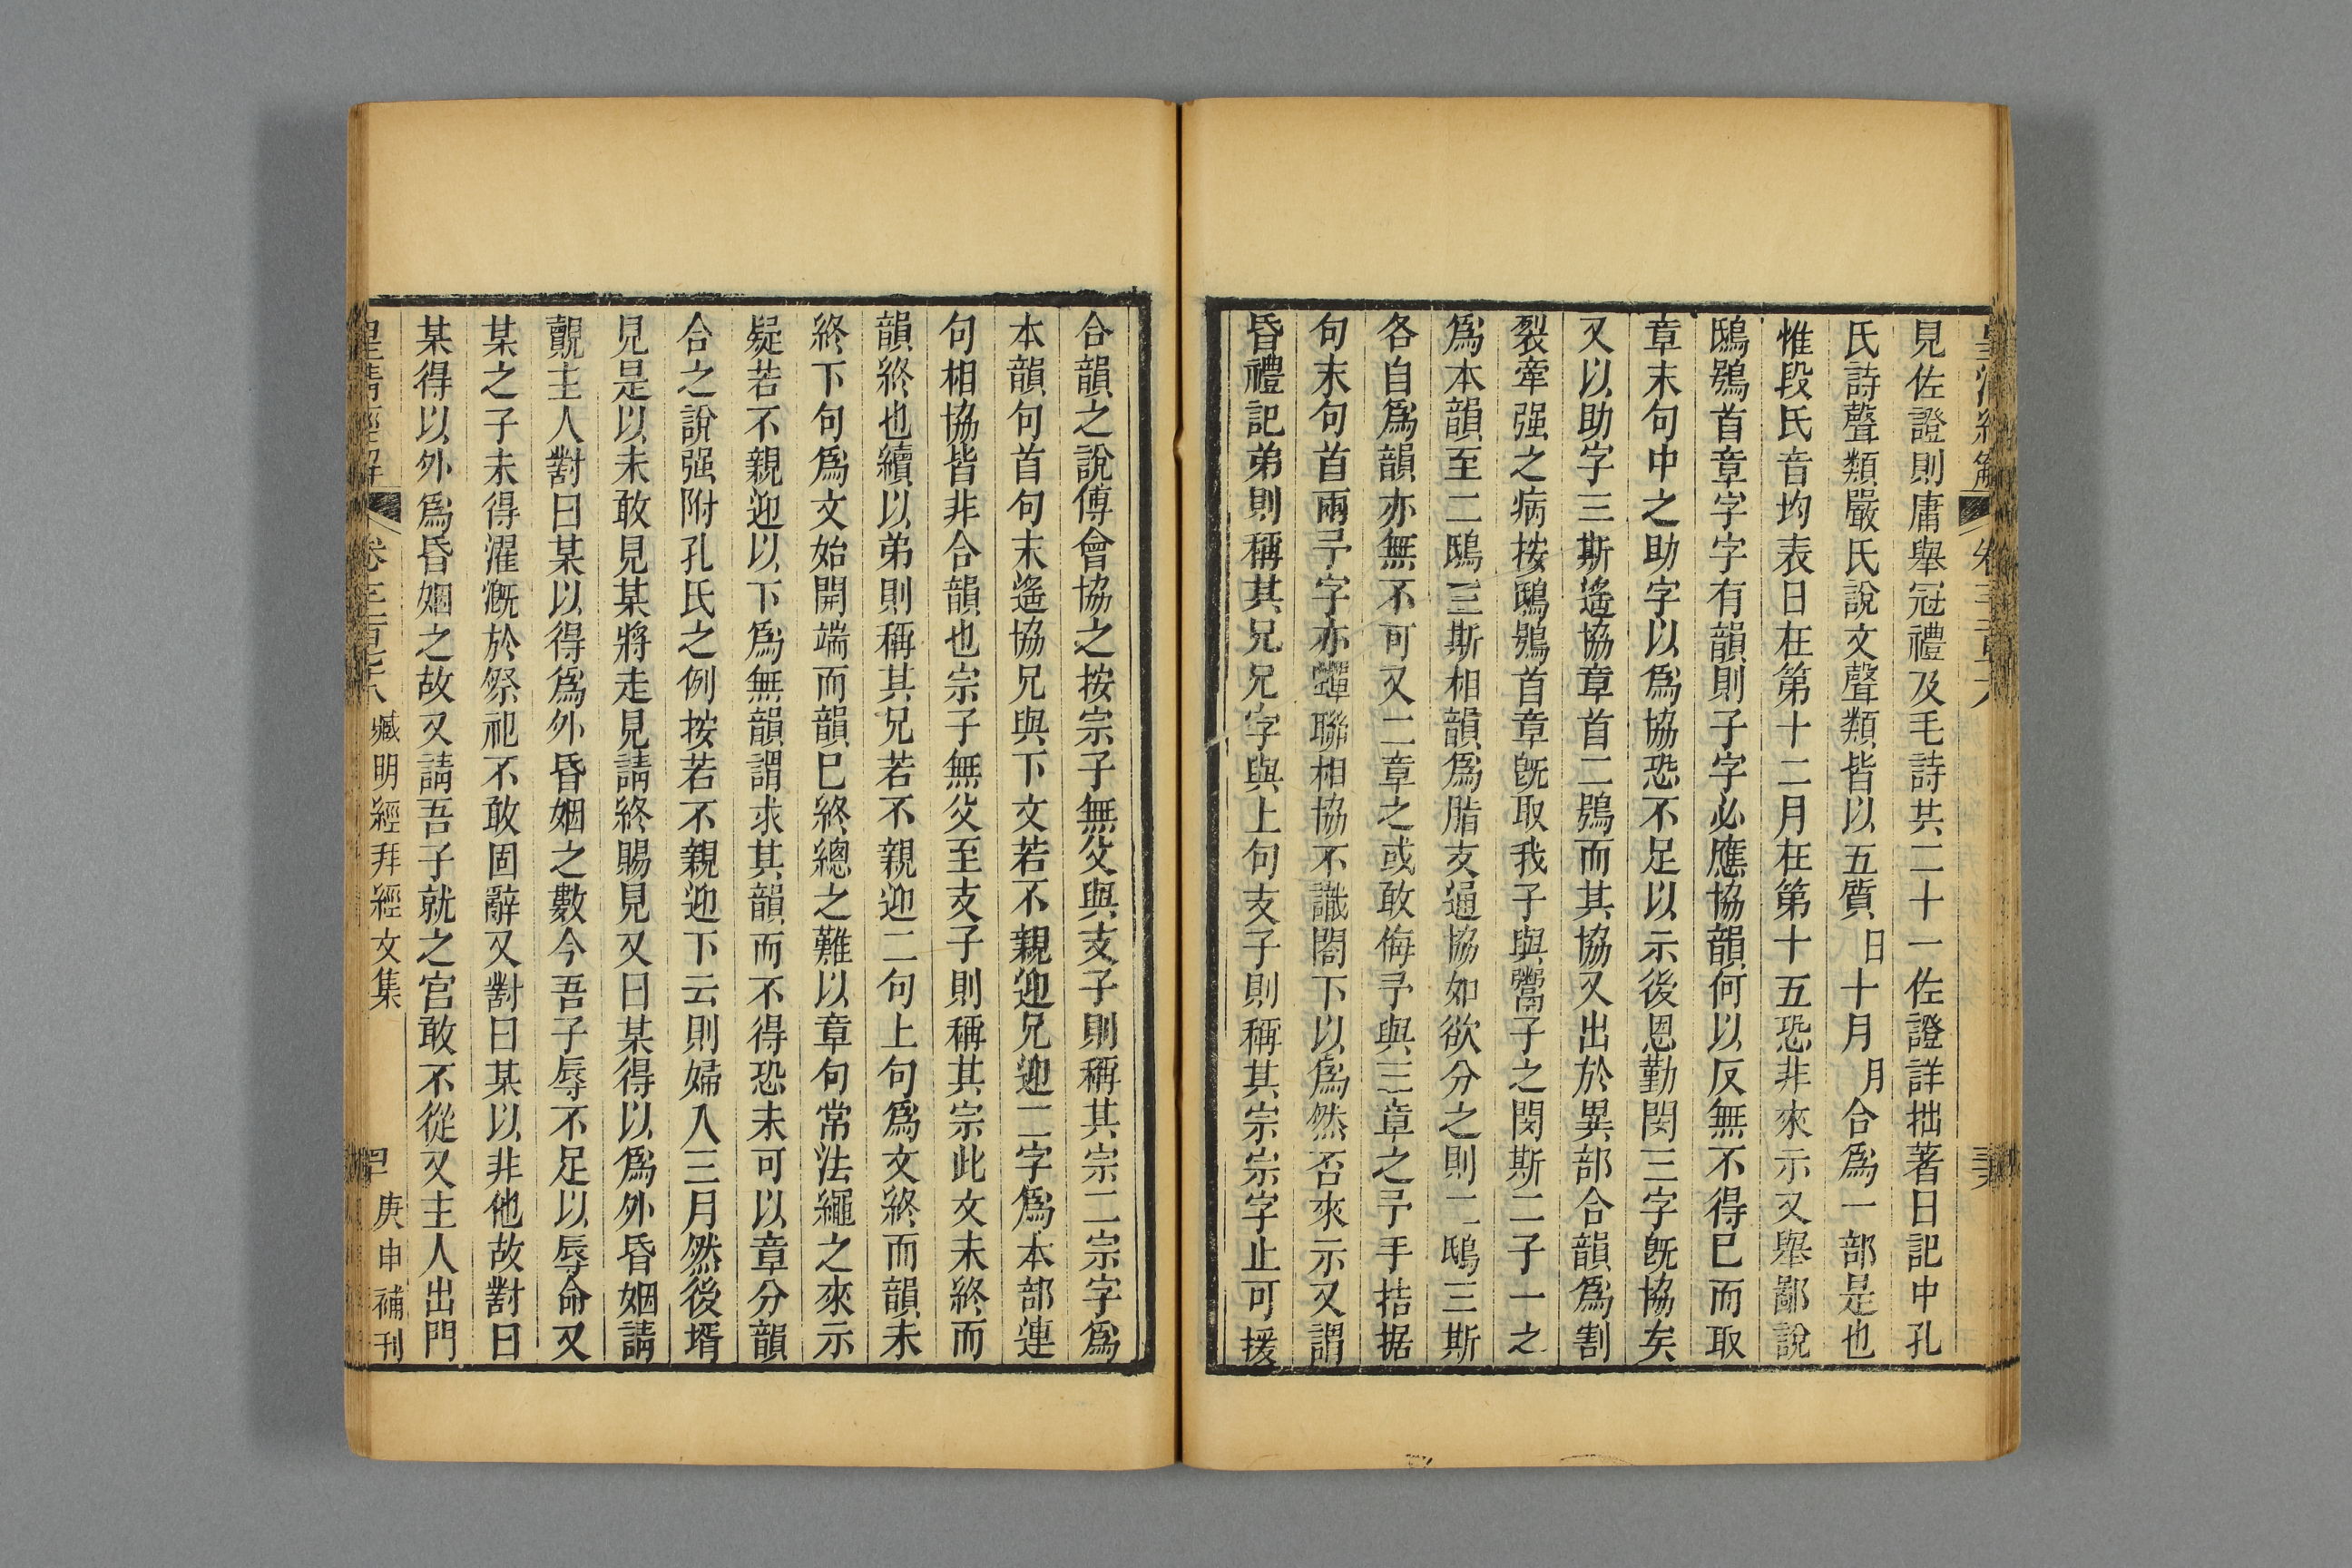 皇清經解 卷千一百七十八 三十六
見佐證則庸舉冠禮及毛詩共二十一佐證詳拙著日記中孔
氏詩聲類嚴氏說文聲類皆以五質日十月月合爲一部是也
惟段氏音均表日在第十二月在第十五恐非來示又舉鄙說
鴟鴞首章字字有韻則子字必應協韻何以反無不得已而取
章末句中之助字以爲協恐不足以示後恩勤閔三字旣協矣
又以助字三斯遙協章首二鴞而其協又出於異部合韻爲割
裂牽强之病按鴟鴞首章旣取我子與鬻子之閔斯二子一之
爲本韻至二鴟三斯相韻爲脂支通協如欲分之則二鴟三斯
各自爲韻亦無不可又二章之或敢侮予與三章之予手拮据
句末句首兩予字亦蟬聯相協不識閣下以爲然否來示又謂
昏禮記弟則稱其兄兄字與上句支子則稱其宗宗字止可援
合韻之說傅會協之按宗子無父與支子則稱其宗二宗字爲
本韻句首句末遙協兄與下文若不親迎兄迎二字爲本部連
句相協皆非合韻也宗子無父至支子則稱其宗此文未終而
韻終也續以弟則稱其兄若不親迎二句上句爲文終而韻未
終下句爲文始開端而韻已終總之難以章句常法繩之來示
疑若不親迎以下爲無韻謂求其韻而不得恐未可以章分韻
合之說强附孔氏之例按若不親迎下云則婦入三月然後壻
見是以未敢見某將走見請終賜見又曰某得以爲外昏姻請
覿主人對曰某以得爲外昏姻之數今吾子辱不足以辱命又
某之子未得濯漑於祭祀不敢固辭又對曰某以非他故對曰
某得以外爲昏姻之故又請吾子就之宮敢不從又主人出門
皇清經解 臧明經拜經文集 庚申補刊